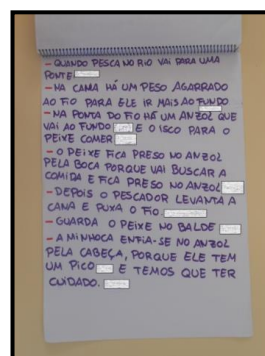 - QUANDO PESCA NO RIO VAI PARA UMA
PONTE
- NA CANA HÁ UM PESO AGARRADO
AO FIO PARA ELE IR MAIS AO FUNDO
- NA PONTA DO FIO HÁ UM ANZOL QUE
VAI AO FUNDO E O ISCO PARA O
PEIXE COMER
- O PEIXE FICA PRESO NO ANZOL
PELA BOCA PORQUE VAI BUSCAR A
COMIDA E FICA PRESO NO ANZOL
- DEPOIS O PESCADOR LEVANTA A
CANA E PUXA O FIO
- GUARDA O PEIXE NO BALDE
- A MINHOCA ENFIA-SE NO ANZOL
PELA CABEÇA, PORQUE ELE TEM
UM PICO E TEMOS QUE TER
CUIDADO.